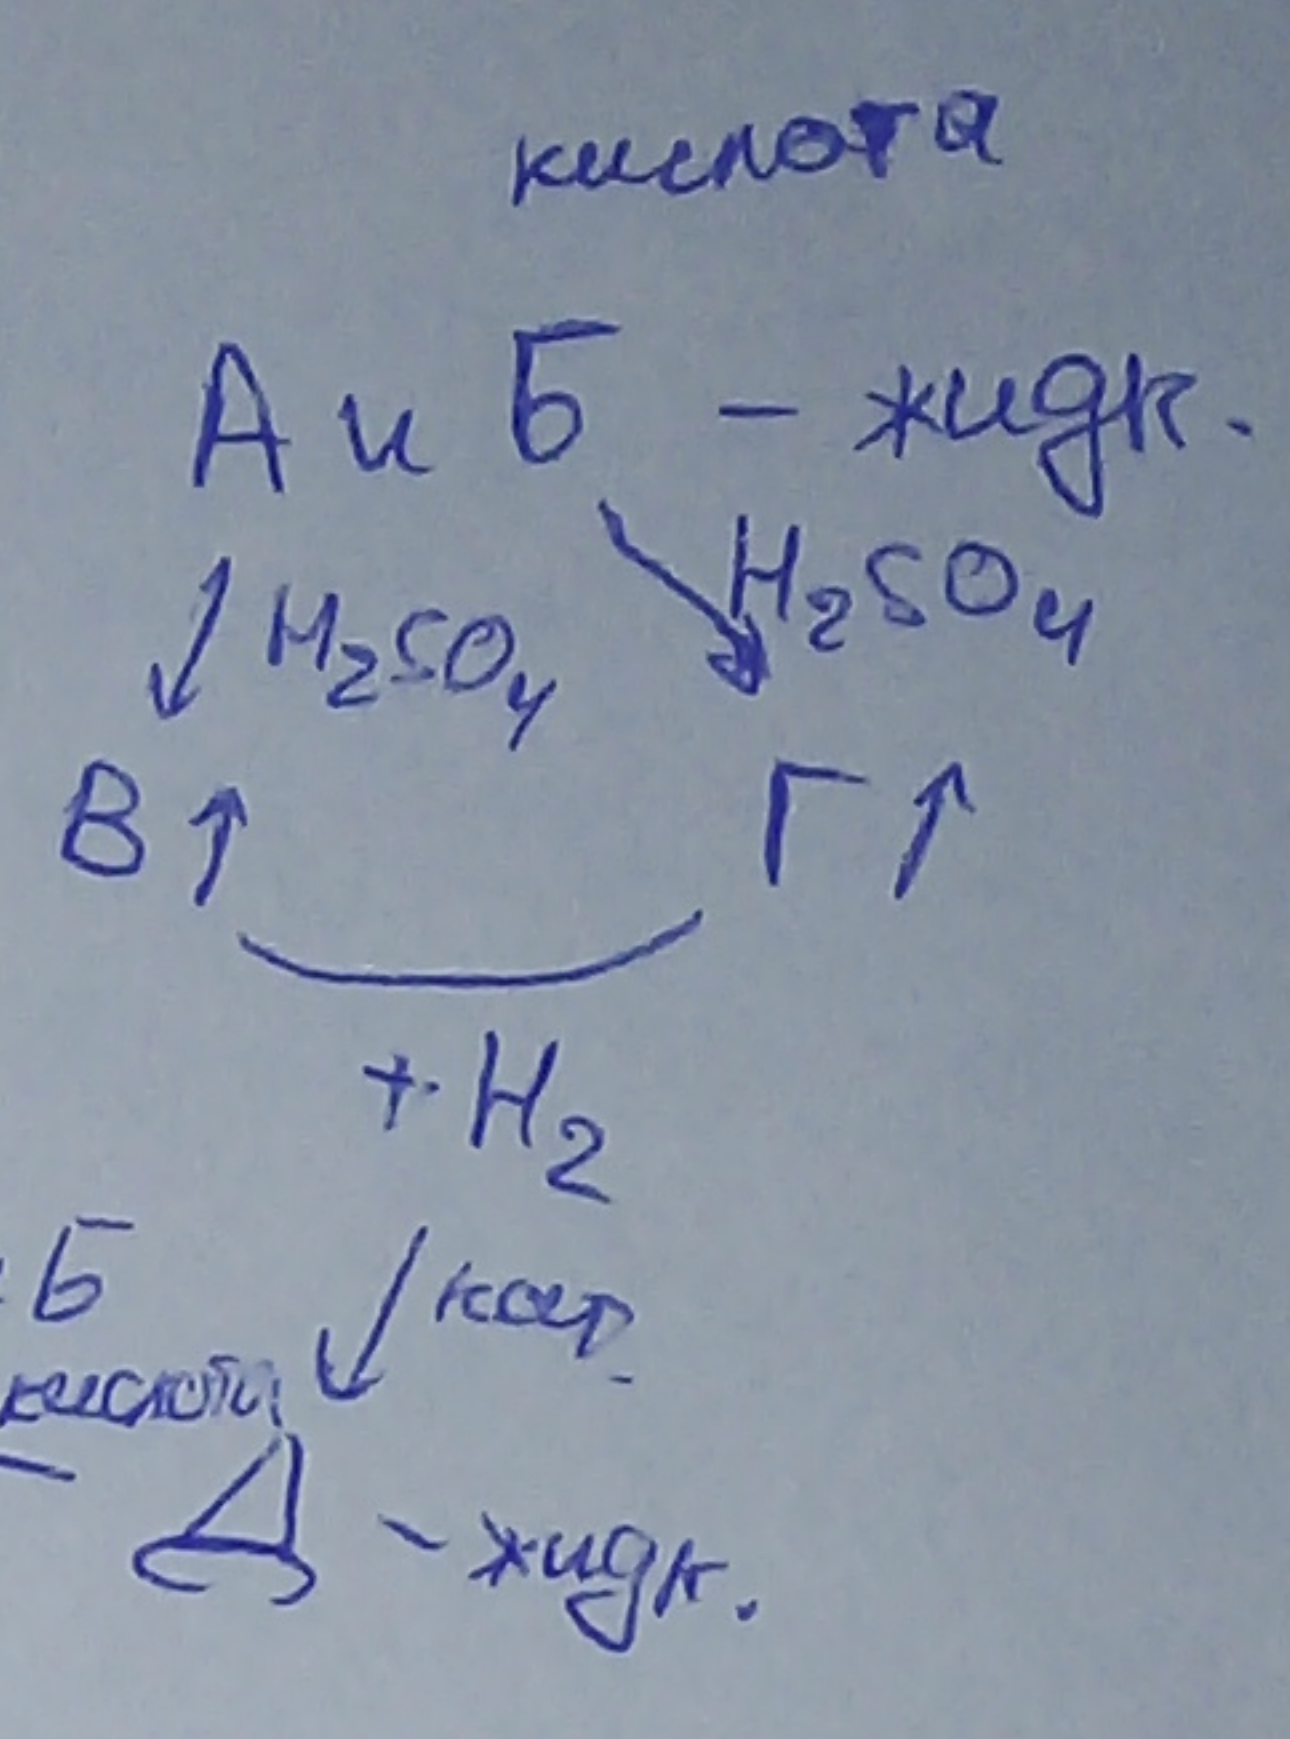 кислота
А и Б - жидк.
↓ H₂SO₄ ↘ H₂SO₄
В↑ Г↑
+ H₂
Б ↓ кат.
кислота
Д - жидк.